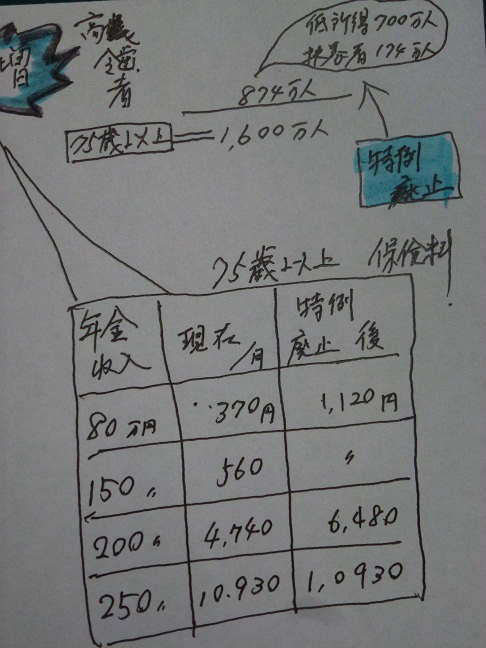 増
高齢者
低所得700万人
扶養者174万人
874万人
75歳以上 = 1,600万人
特例
廃止
75歳以上 保険料
年金
収入
現在
/月
特例
廃止後
80万円 370円 1,120円
150〃 560 〃
200〃 4,740 6,480
250〃 10.930 1,0930